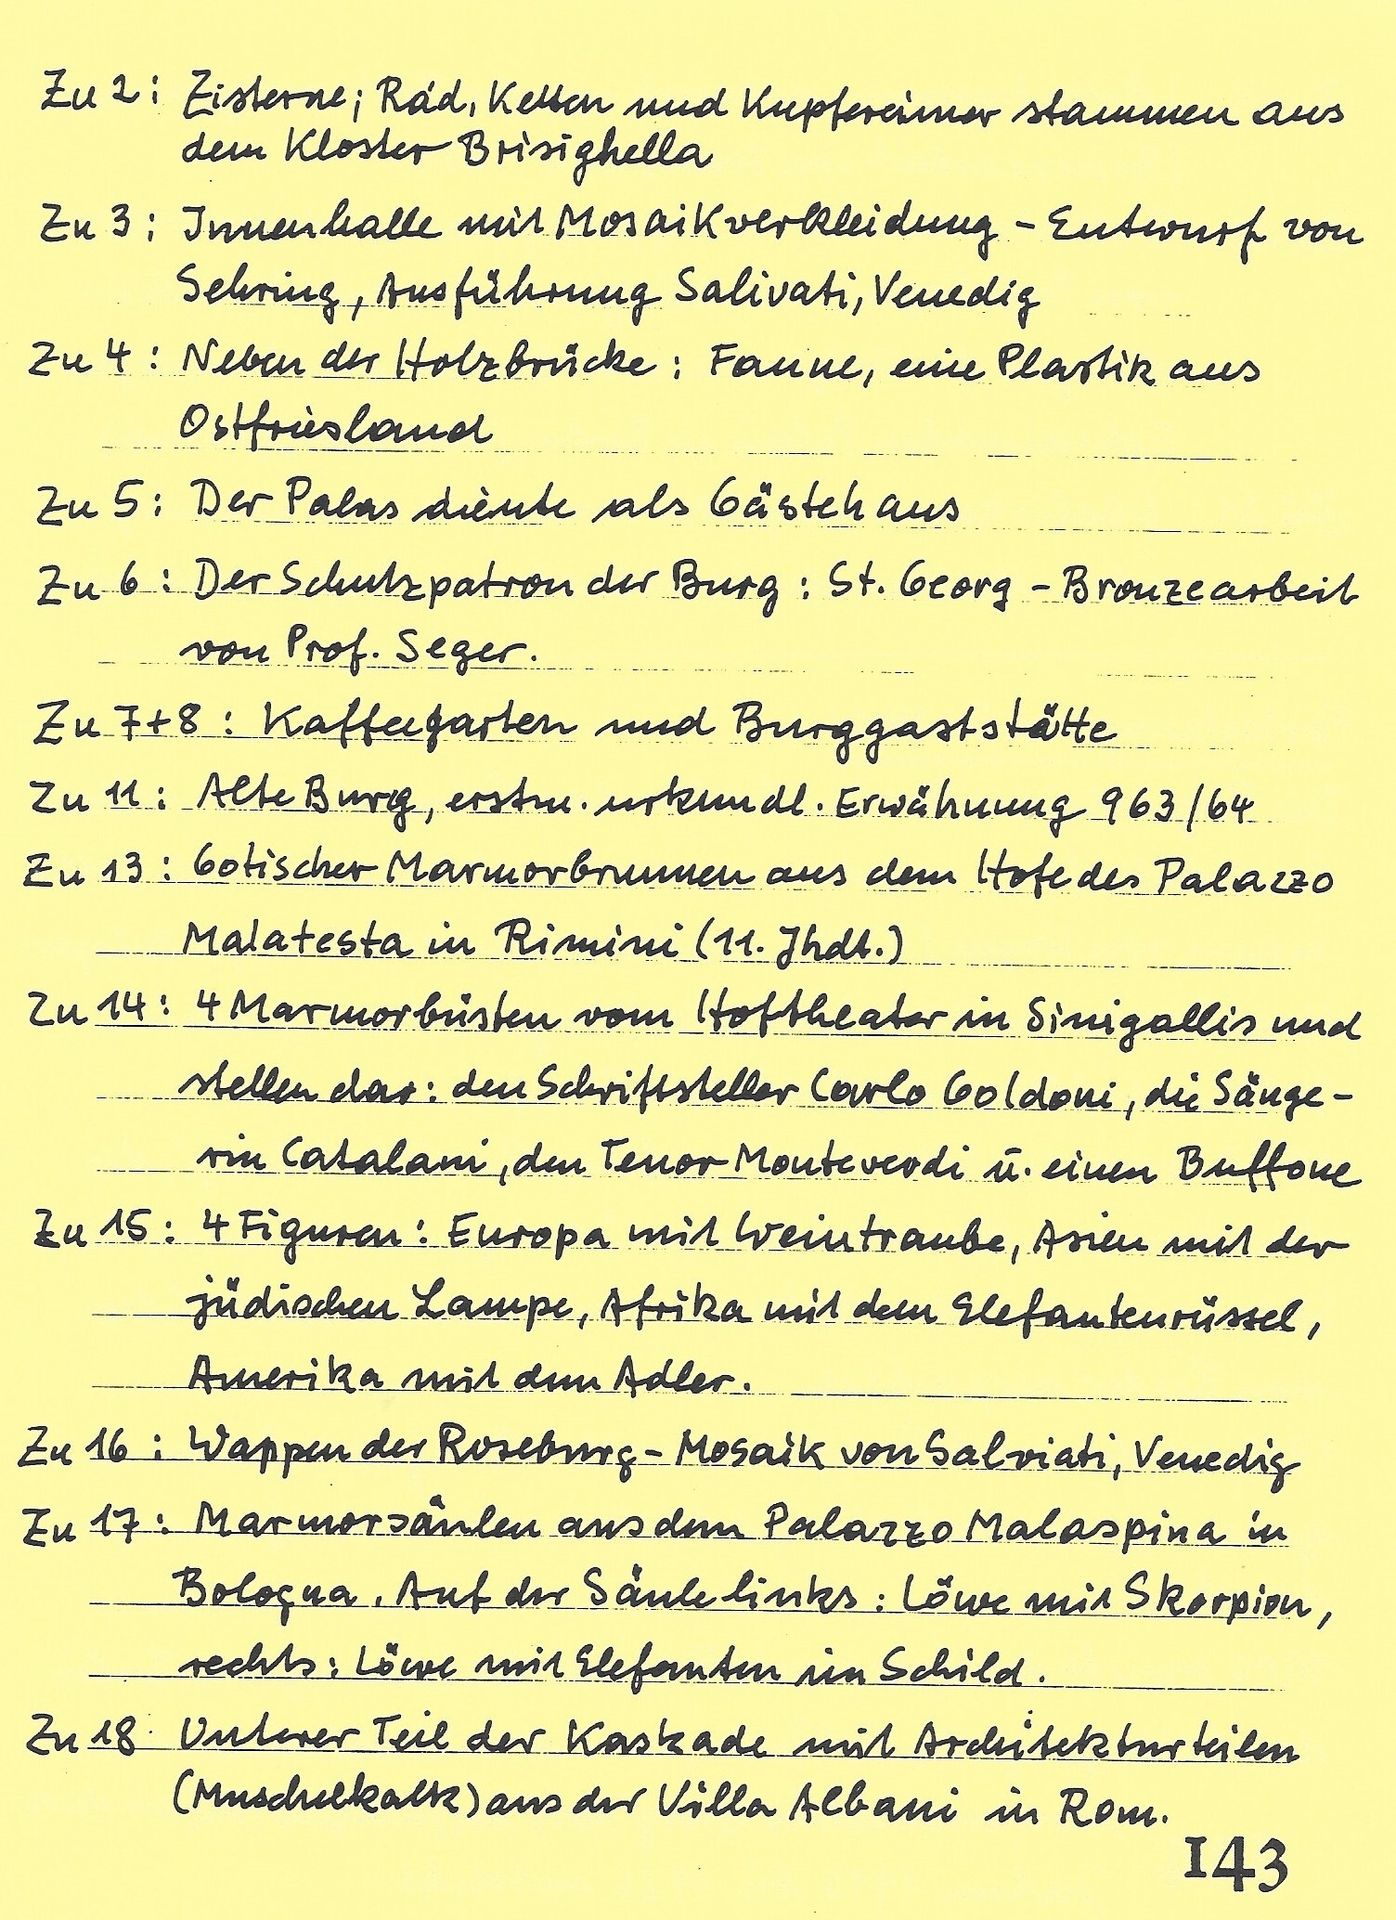 Zu 2: Zisterne; Rad, Ketten und Kupfereimer stammen aus
dem Kloster Brisighella
Zu 3: Innenhalle mit Mosaikverkleidung - Entwurf von
Sehring, Ausführung Salivati, Venedig
Zu 4: Neben der Holzbrücke: Faune, eine Plastik aus
Ostfriesland
Zu 5: Der Palas diente als Gästehaus
Zu 6: Der Schutzpatron der Burg: St. Georg - Bronzearbeit
von Prof. Seger.
Zu 7+8: Kaffeegarten und Burggaststätte
Zu 11: Alte Burg, erstm. urkundl. Erwähnung 963/64
Zu 13: Gotischer Marmorbrunnen aus dem Hofe des Palazzo
Malatesta in Rimini (11. Jhdt.)
Zu 14: 4 Marmorbüsten vom Hoftheater in Sinigallis und
stellen dar: den Schriftsteller Carlo Goldoni, die Sänge-
rin Catalani, den Tenor Monteverdi u. einen Buffone
Zu 15: 4 Figuren: Europa mit Weintraube, Asien mit der
jüdischen Lampe, Afrika mit dem Elefantenrüssel,
Amerika mit dem Adler.
Zu 16: Wappen der Roseburg - Mosaik von Salviati, Venedig
Zu 17: Marmorsäulen aus dem Palazzo Malaspina in
Bologna. Auf der Säule links: Löwe mit Skorpion,
rechts: Löwe mit Elefanten im Schild.
Zu 18 Unterer Teil der Kaskade mit Architekturteilen
(Muschelkalk) aus der Villa Albani in Rom.
143